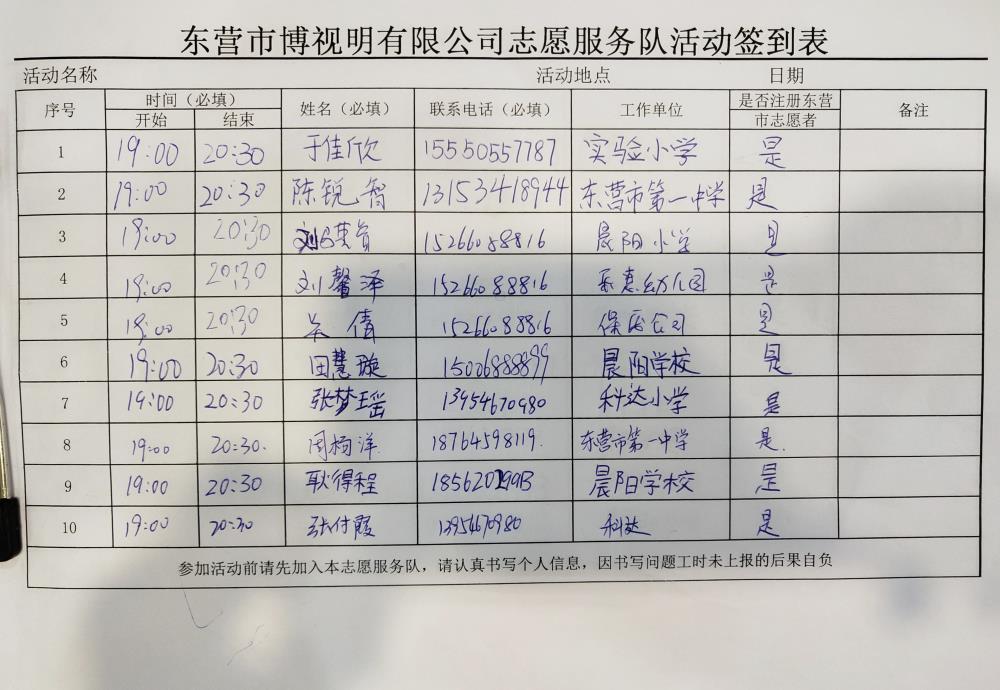 东营市博视明有限公司志愿服务队活动签到表
活动名称 活动地点 日期
序号 时间（必填） 姓名（必填） 联系电话（必填） 工作单位 是否注册东营市志愿者 备注
开始 结束
1 19:00 20:30 于佳欣 15550557787 实验小学 是
2 19:00 20:30 陈锐智 13153418944 东营市第一中学 是
3 19:00 20:30 15266088816 晨阳小学 是
4 19:00 20:30 刘馨泽 15266088816 幼儿园 是
5 19:00 20:30 倩 15266088816 保医公司 是
6 19:00 20:30 田慧璇 15006888899 晨阳学校 是
7 19:00 20:30 张梦瑶 13954670980 科达小学 是
8 19:00 20:30. 周杨洋. 18764598119. 东营市第一中学 是.
9 19:00 20:30 耿得程 晨阳学校 是
10 19:00 20:30 张付霞 13954670980 科达 是
参加活动前请先加入本志愿服务队，请认真书写个人信息，因书写问题工时未上报的后果自负